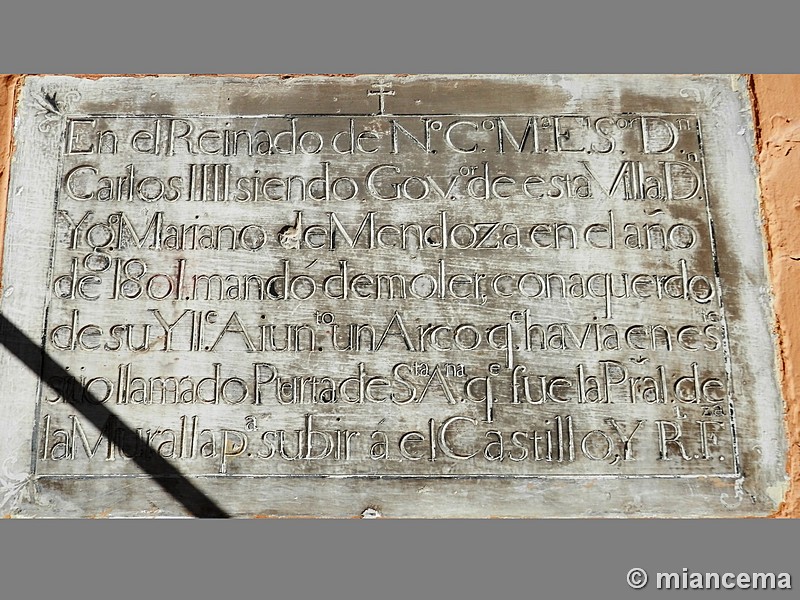 En el Reinado de N.º C.º M.ª E.l S.or D.n
Carlos IIII siendo Gov.or de esta Villa D.n
Yg.º Mariano de Mendoza en el año
de 1801. mandó demoler, con aquerdo
de su Yll.e Aiun.to un Arco q.e havia en es
sitio llamado Purta de S.ta Ana q.e fue la Pral. de
la Murallap.a subir á el Castillo, Y R.l F.za
© miancema